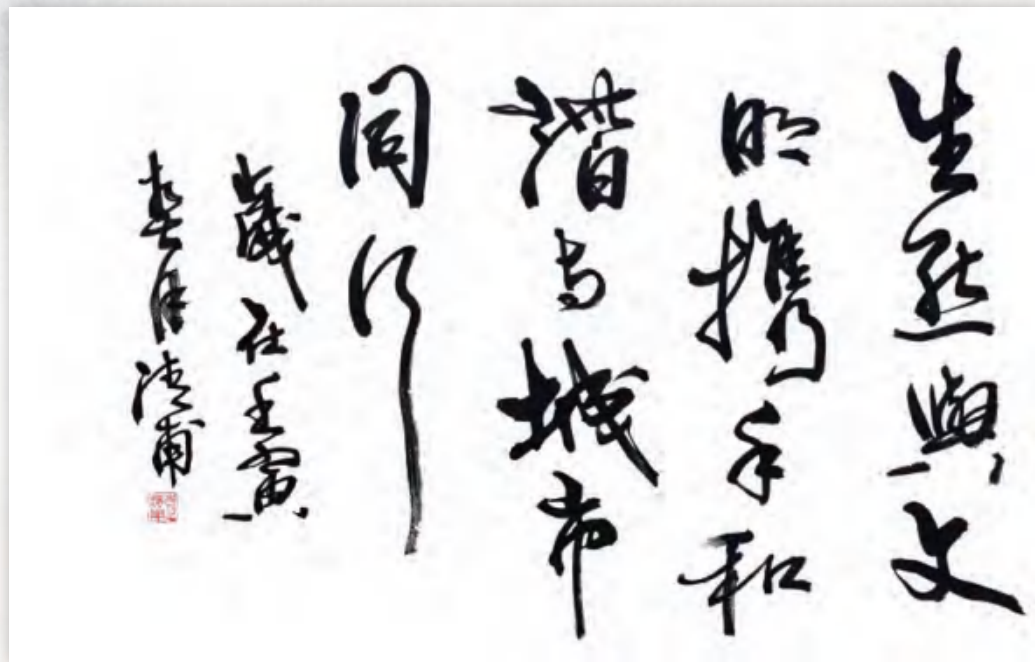 生态與文
明携手和
谐与城市
同行
歲在壬寅
春月清甫